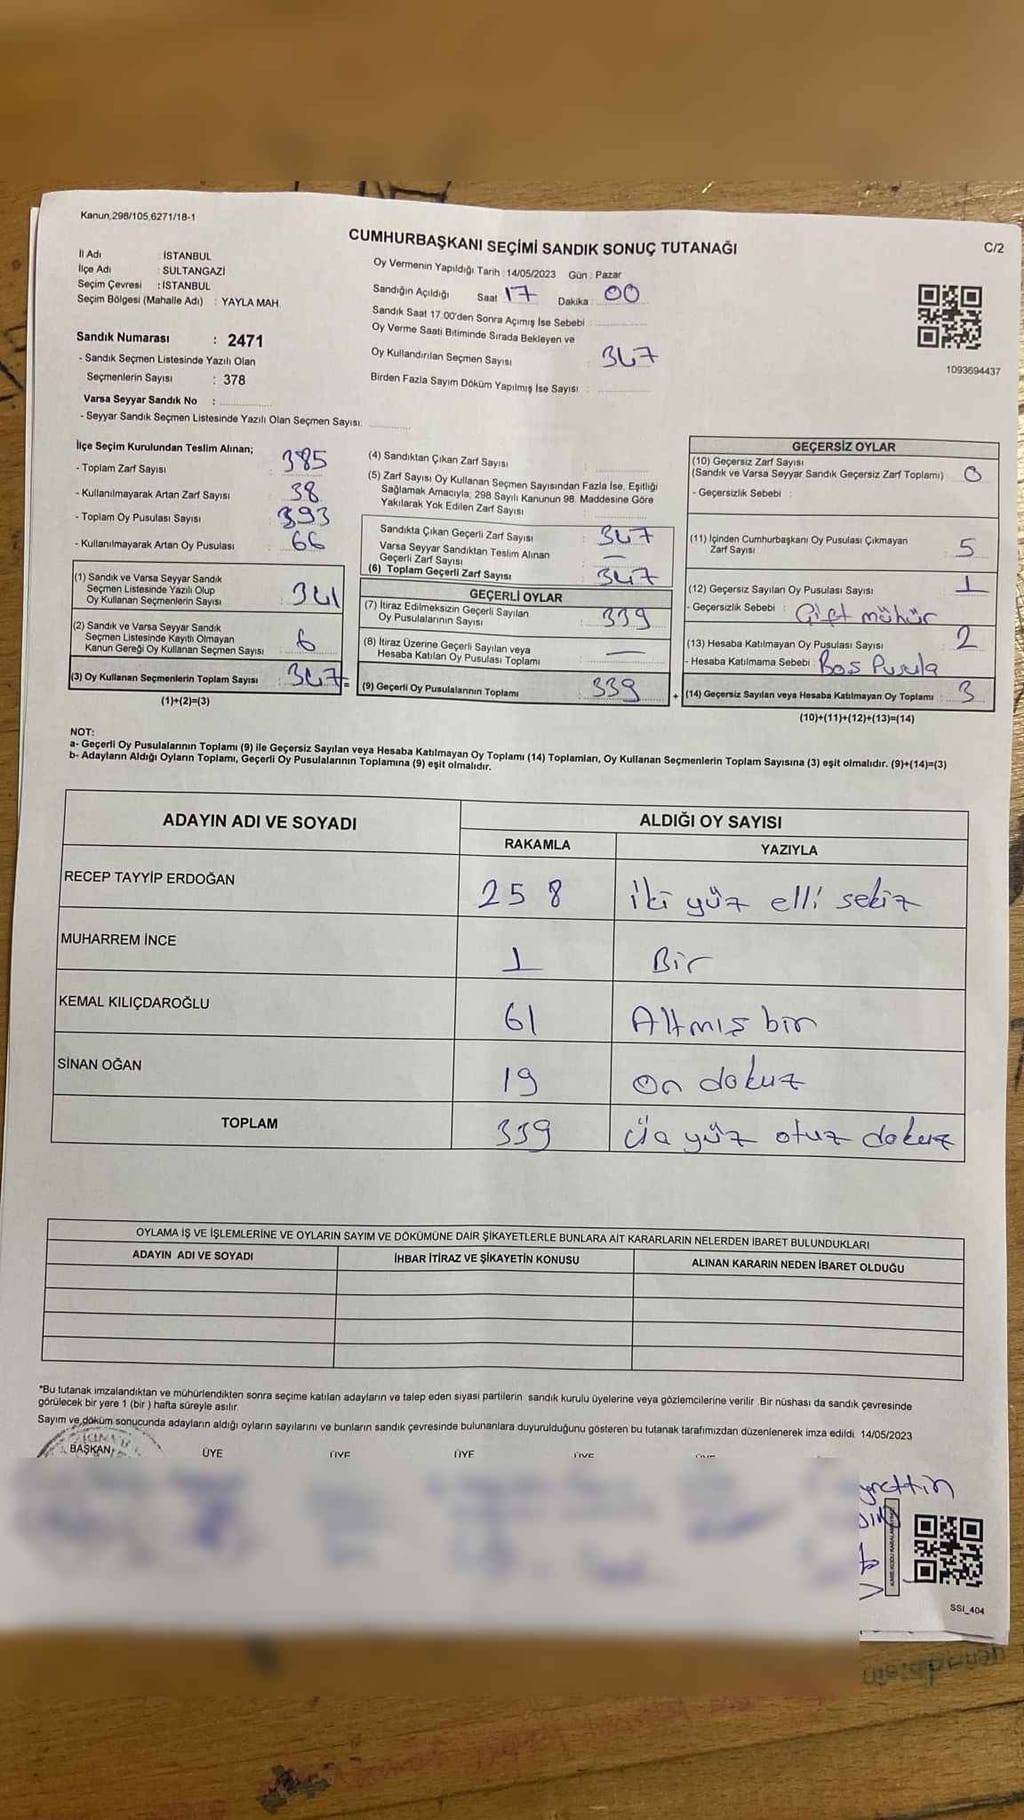 Kanun,298/105,6271/18-1
CUMHURBAŞKANI SEÇİMİ SANDIK SONUÇ TUTANAĞI
C/2
İl Adı : İSTANBUL
İlçe Adı : SULTANGAZİ
Seçim Çevresi : İSTANBUL
Seçim Bölgesi (Mahalle Adı) : YAYLA MAH.
Sandık Numarası : 2471
- Sandık Seçmen Listesinde Yazılı Olan
Seçmenlerin Sayısı : 378
Varsa Seyyar Sandık No :
- Seyyar Sandık Seçmen Listesinde Yazılı Olan Seçmen Sayısı:
Oy Vermenin Yapıldığı Tarih : 14/05/2023 Gün : Pazar
Sandığın Açıldığı Saat 17 Dakika : 00
Sandık Saat 17.00'den Sonra Açımış İse Sebebi :
Oy Verme Saati Bitiminde Sırada Bekleyen ve
Oy Kullandırılan Seçmen Sayısı : 347
Birden Fazla Sayım Döküm Yapılmış İse Sayısı :
1093694437
İlçe Seçim Kurulundan Teslim Alınan;
- Toplam Zarf Sayısı : 385
- Kullanılmayarak Artan Zarf Sayısı : 38
- Toplam Oy Pusulası Sayısı : 393
- Kullanılmayarak Artan Oy Pusulası : 66
(1) Sandık ve Varsa Seyyar Sandık
Seçmen Listesinde Yazılı Olup
Oy Kullanan Seçmenlerin Sayısı : 341
(2) Sandık ve Varsa Seyyar Sandık
Seçmen Listesinde Kayıtlı Olmayan
Kanun Gereği Oy Kullanan Seçmen Sayısı : 6
(3) Oy Kullanan Seçmenlerin Toplam Sayısı : 347 =
(1)+(2)=(3)
(4) Sandıktan Çıkan Zarf Sayısı :
(5) Zarf Sayısı Oy Kullanan Seçmen Sayısından Fazla İse, Eşitliği
Sağlamak Amacıyla, 298 Sayılı Kanunun 98. Maddesine Göre
Yakılarak Yok Edilen Zarf Sayısı :
Sandıkta Çıkan Geçerli Zarf Sayısı : 347
Varsa Seyyar Sandıktan Teslim Alınan
Geçerli Zarf Sayısı : —
(6) Toplam Geçerli Zarf Sayısı : 347
GEÇERLİ OYLAR
(7) İtiraz Edilmeksizin Geçerli Sayılan
Oy Pusulalarının Sayısı : 339
(8) İtiraz Üzerine Geçerli Sayılan veya
Hesaba Katılan Oy Pusulası Toplamı : —
(9) Geçerli Oy Pusulalarının Toplamı : 339 +
GEÇERSİZ OYLAR
(10) Geçersiz Zarf Sayısı
(Sandık ve Varsa Seyyar Sandık Geçersiz Zarf Toplamı) : 0
- Geçersizlik Sebebi :
(11) İçinden Cumhurbaşkanı Oy Pusulası Çıkmayan
Zarf Sayısı : 5
(12) Geçersiz Sayılan Oy Pusulası Sayısı : 1
- Geçersizlik Sebebi : Çift mühür
(13) Hesaba Katılmayan Oy Pusulası Sayısı : 2
- Hesaba Katılmama Sebebi : Boş Pusula
(14) Geçersiz Sayılan veya Hesaba Katılmayan Oy Toplamı : 3
(10)+(11)+(12)+(13)=(14)
NOT:
a- Geçerli Oy Pusulalarının Toplamı (9) ile Geçersiz Sayılan veya Hesaba Katılmayan Oy Toplamı (14) Toplamları, Oy Kullanan Seçmenlerin Toplam Sayısına (3) eşit olmalıdır. (9)+(14)=(3)
b- Adayların Aldığı Oyların Toplamı, Geçerli Oy Pusulalarının Toplamına (9) eşit olmalıdır.
ADAYIN ADI VE SOYADI
ALDIĞI OY SAYISI
RAKAMLA YAZIYLA
RECEP TAYYİP ERDOĞAN 258 iki yüz elli sekiz
MUHARREM İNCE 1 Bir
KEMAL KILIÇDAROĞLU 61 Altmış bir
SİNAN OĞAN 19 on dokuz
TOPLAM 339 üç yüz otuz dokuz
OYLAMA İŞ VE İŞLEMLERİNE VE OYLARIN SAYIM VE DÖKÜMÜNE DAİR ŞİKAYETLERLE BUNLARA AİT KARARLARIN NELERDEN İBARET BULUNDUKLARI
ADAYIN ADI VE SOYADI İHBAR İTİRAZ VE ŞİKAYETİN KONUSU ALINAN KARARIN NEDEN İBARET OLDUĞU
*Bu tutanak imzalandıktan ve mühürlendikten sonra seçime katılan adayların ve talep eden siyasi partilerin sandık kurulu üyelerine veya gözlemcilerine verilir. Bir nüshası da sandık çevresinde
görülecek bir yere 1 (bir ) hafta süreyle asılır.
Sayım ve döküm sonucunda adayların aldığı oyların sayılarını ve bunların sandık çevresinde bulunanlara duyurulduğunu gösteren bu tutanak tarafımızdan düzenlenerek imza edildi. 14/05/2023
BAŞKAN ÜYE ÜYE ÜYE ÜYE
SSI_404